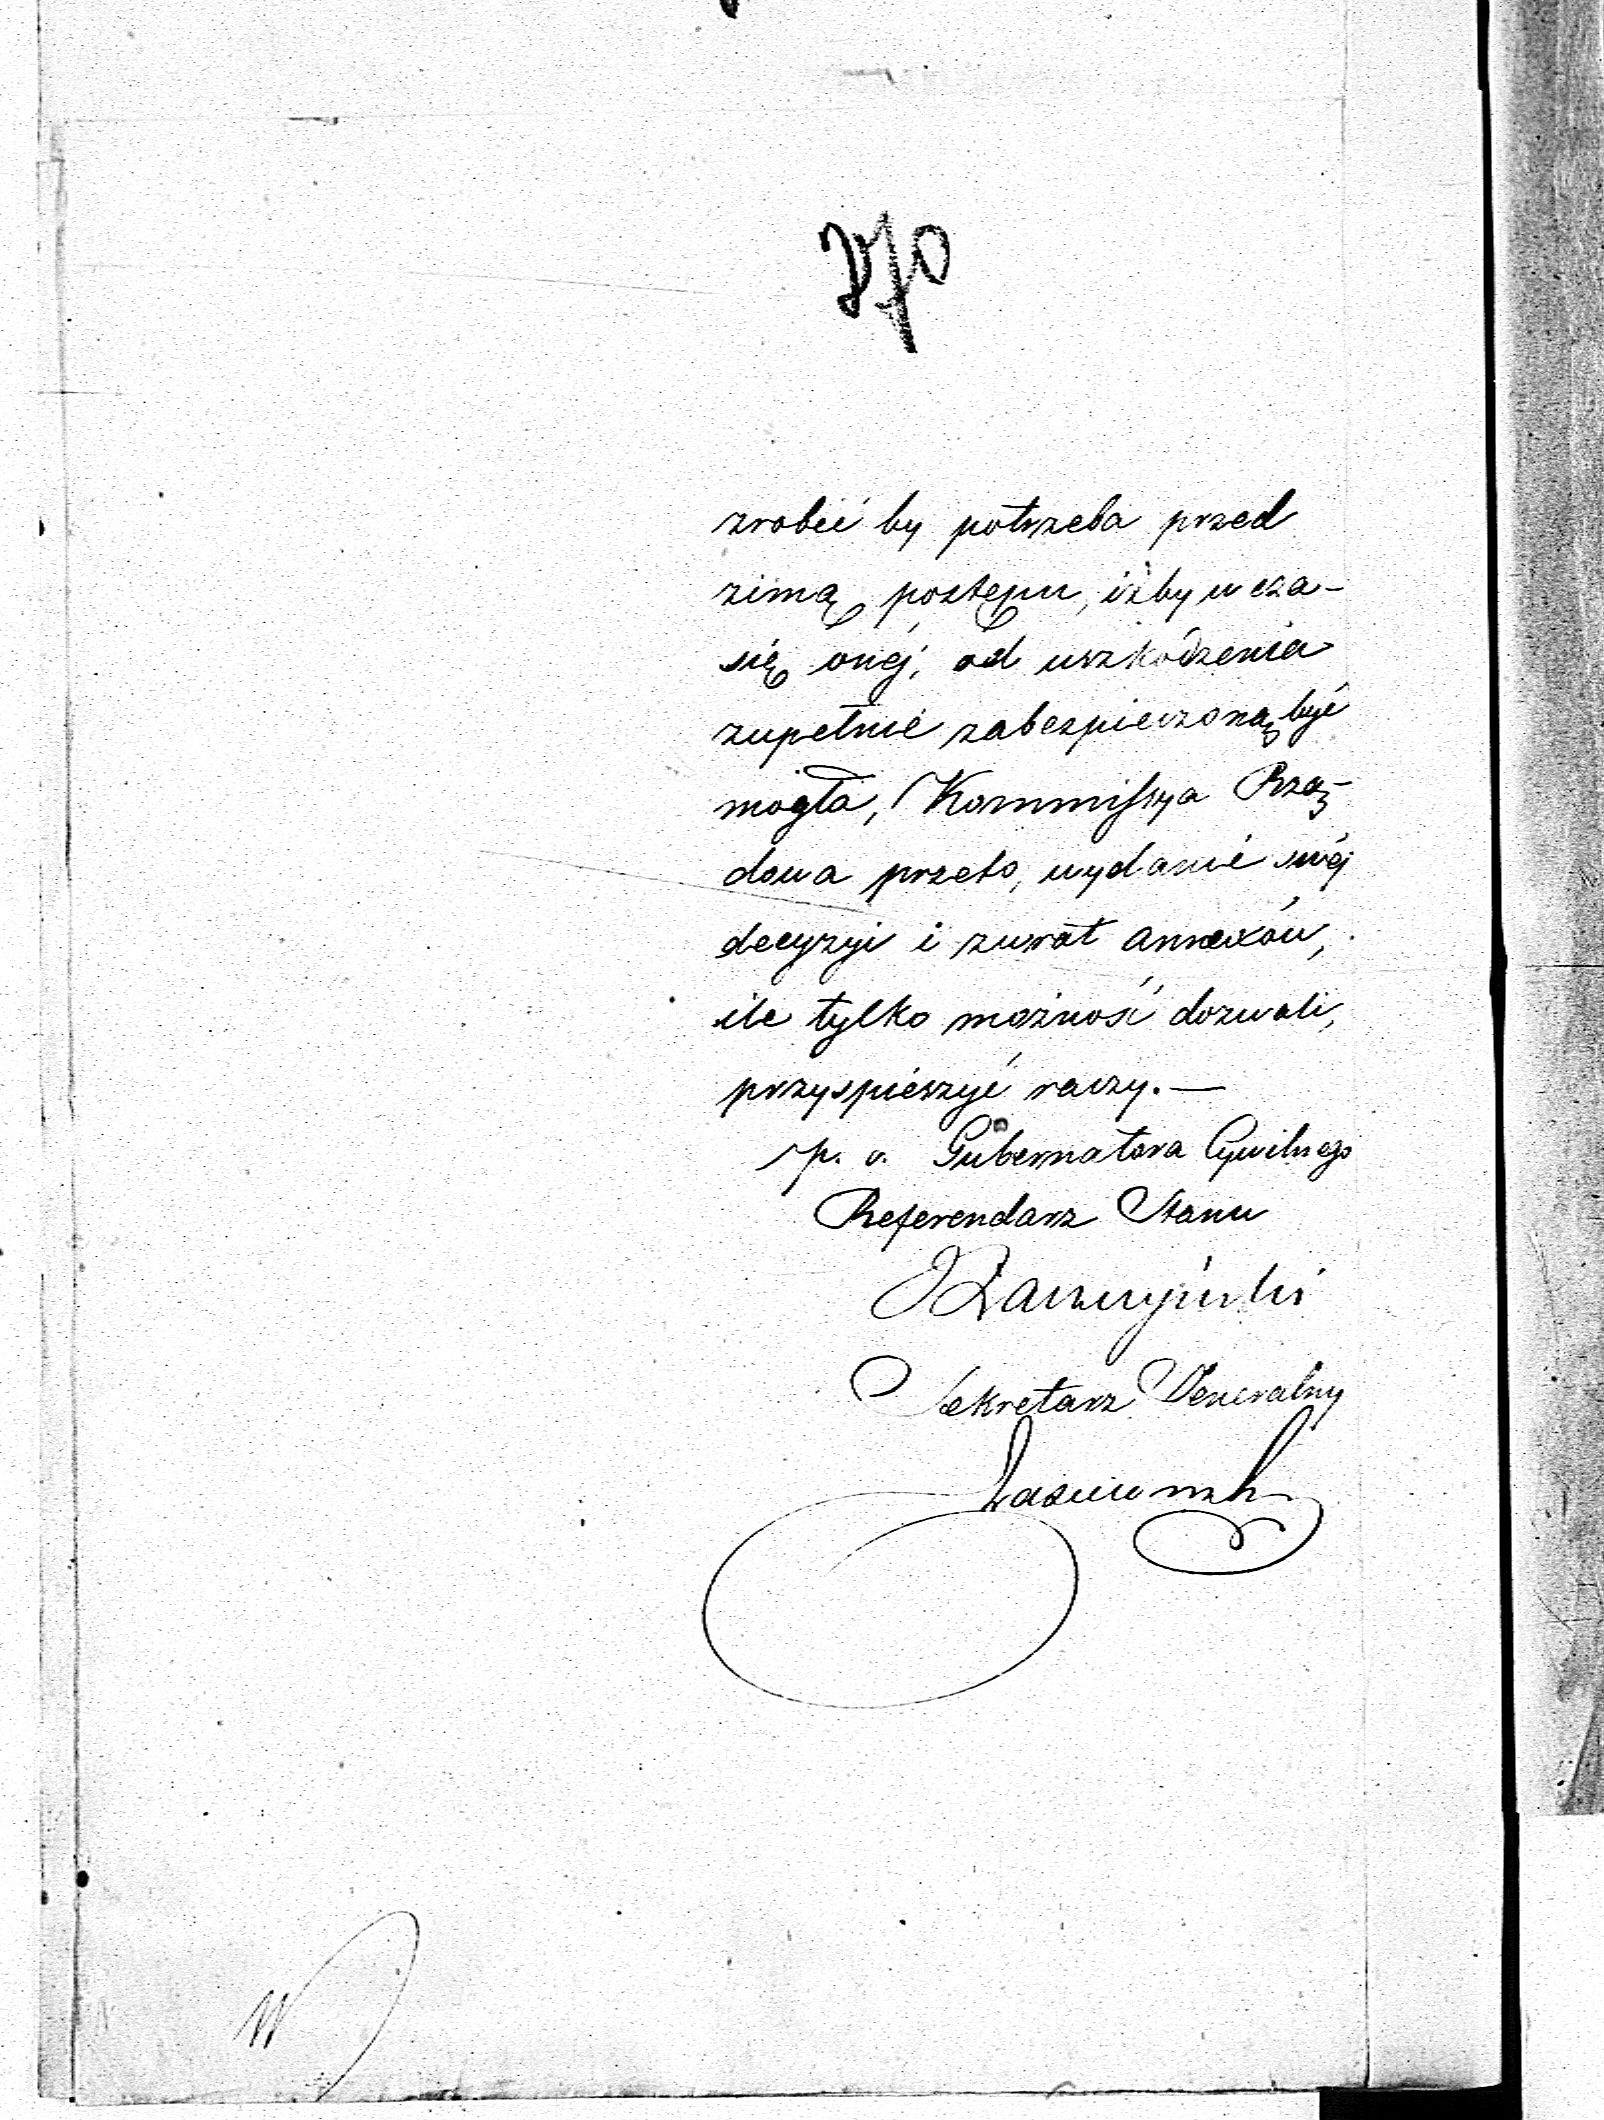 zrobić by potrzeba przed
zimą postępu, iżby w cza-
się onéj, od uszkodzenia
zupełnie zabezpieczoną być
mogła, Kommissya Rzą-
dowa przeto, wydanie swéj
decyzyi i zwrot annexów,
ile tylko możność dozwoli,
przyspieszyć raczy.—
p. o. Gubernatora Cywilnego
Referendarz Stanu
Sekretarz Generalny